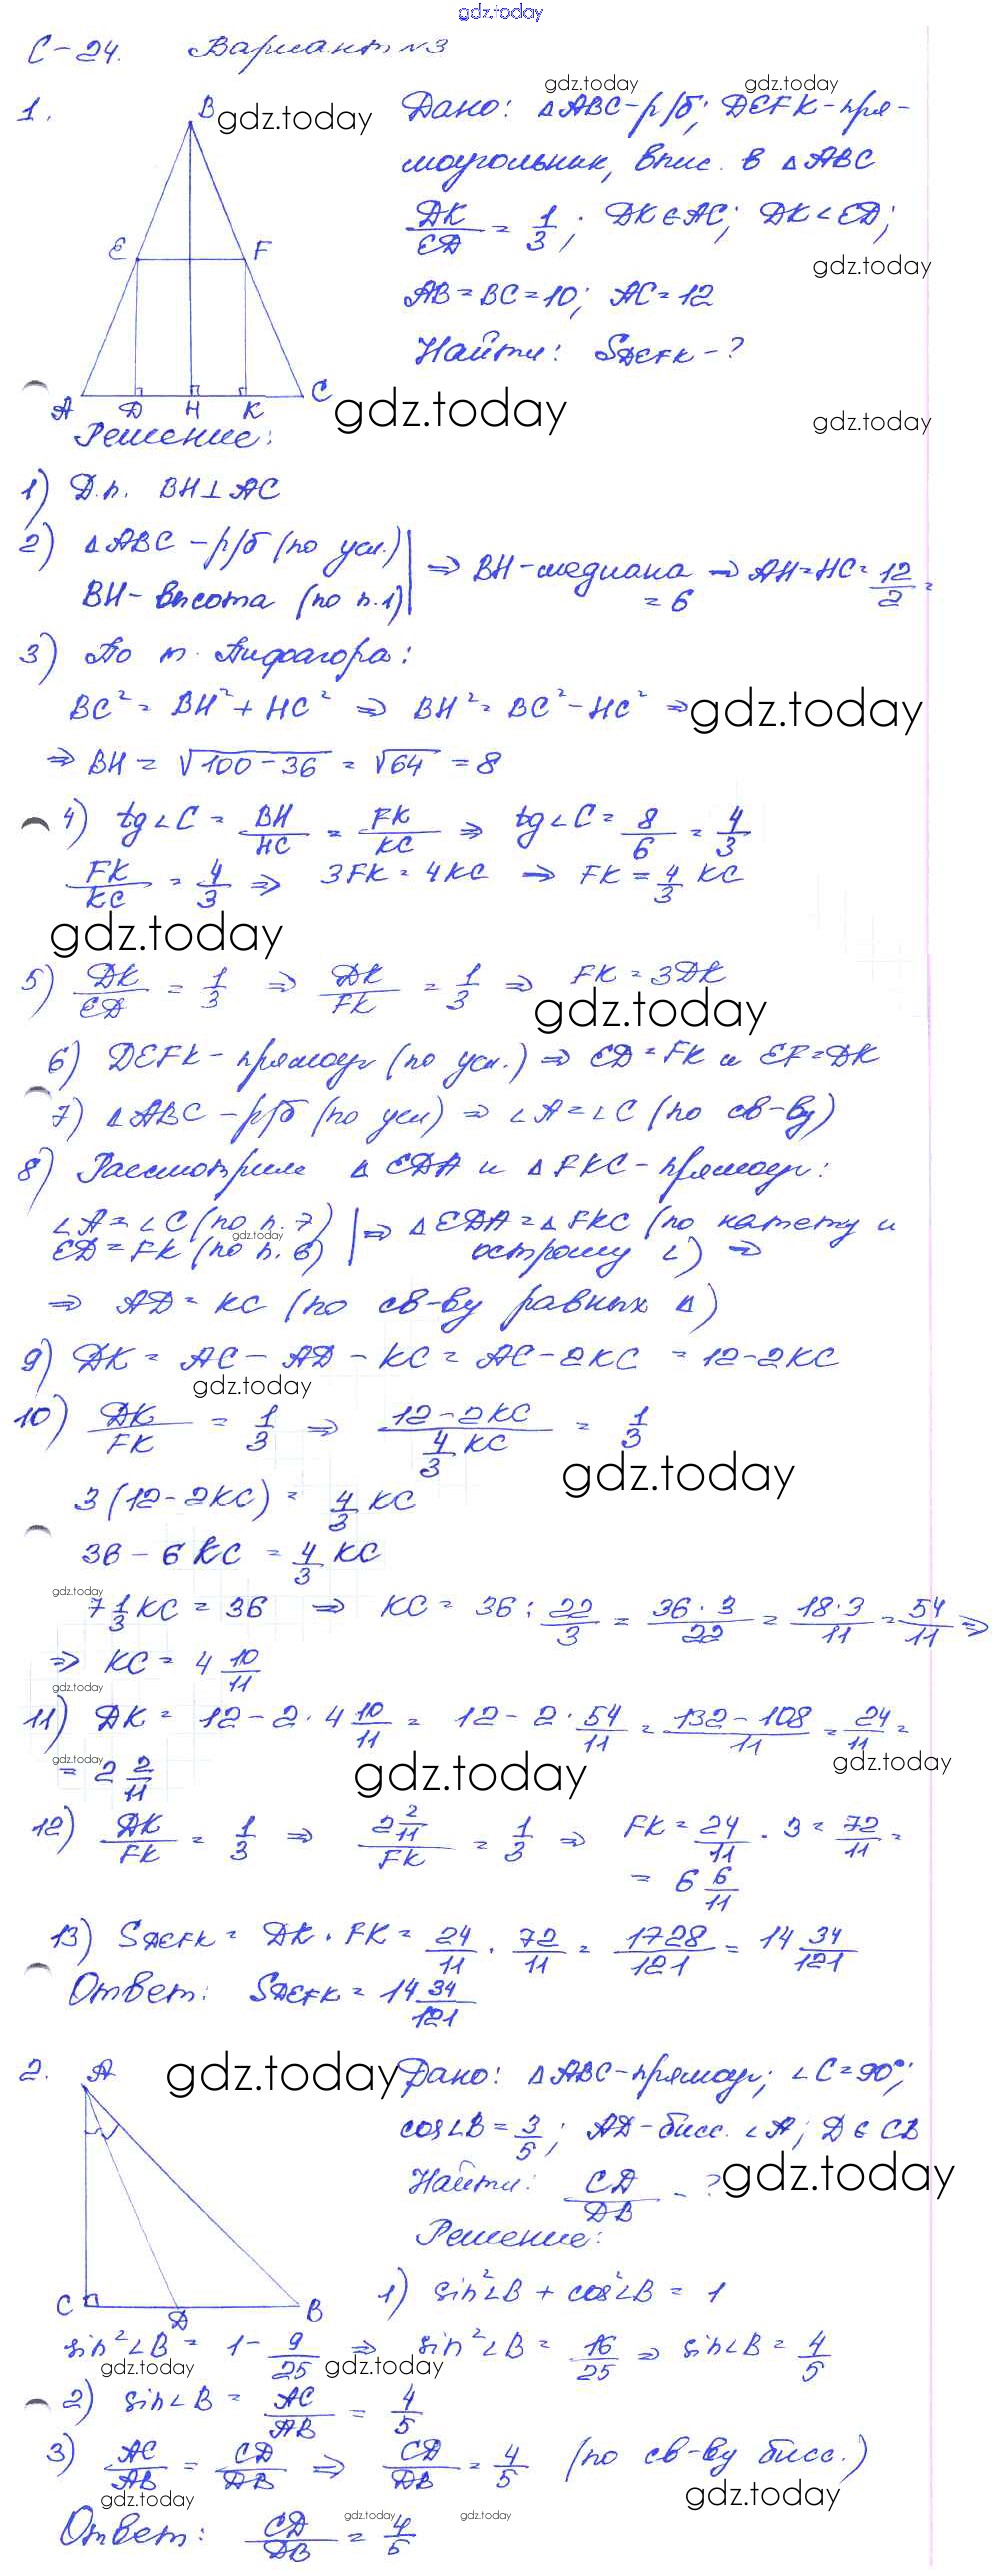 gdz.today
С-24. Вариант №3
1.
B gdz.today
E F
A D H K C
gdz.today gdz.today
Дано: △ABC-р/б; DEFK-пря-
моугольник, впис. в △ABC
DK/ED = 1/3; DK∈AC; DK<ED;
gdz.today
AB=BC=10; AC=12
Найти: S_DEFK-?
gdz.today gdz.today
Решение:
1) Д.п. BH⊥AC
2) △ABC-р/б (по усл.) | ⇒ BH-медиана ⇒ AH=HC=12/2=
BH-высота (по п.1) | =6
3) По т. Пифагора:
BC²=BH²+HC² ⇒ BH²=BC²-HC² ⇒ gdz.today
⇒ BH = √100-36 = √64 = 8
4) tg∠C = BH/HC = FK/KC ⇒ tg∠C = 8/6 = 4/3
FK/KC = 4/3 ⇒ 3FK=4KC ⇒ FK=4/3 KC
gdz.today
5) DK/ED = 1/3 ⇒ DK/FK = 1/3 ⇒ FK=3DK
gdz.today
6) DEFK-прямоуг (по усл.) ⇒ ED=FK и EF=DK
7) △ABC-р/б (по усл) ⇒ ∠A=∠C (по св-ву)
8) Рассмотрим △EDA и △FKC-прямоуг:
∠A=∠C (по п.7) | ⇒ △EDA=△FKC (по катету и
gdz.today
ED=FK (по п.6) | острому ∠) ⇒
⇒ AD=KC (по св-ву равных △)
9) DK = AC-AD-KC = AC-2KC = 12-2KC
gdz.today
10) DK/FK = 1/3 ⇒ 12-2KC / 4/3 KC = 1/3
gdz.today
3(12-2KC) = 4/3 KC
36-6KC = 4/3 KC
gdz.today
7 1/3 KC = 36 ⇒ KC = 36 : 22/3 = 36·3/22 = 18·3/11 = 54/11 ⇒
⇒ KC = 4 10/11
gdz.today
11) DK = 12-2·4 10/11 = 12-2·54/11 = 132-108/11 = 24/11 =
gdz.today gdz.today gdz.today
= 2 2/11
12) DK/FK = 1/3 ⇒ 2 2/11 / FK = 1/3 ⇒ FK = 24/11 · 3 = 72/11 =
= 6 6/11
13) S_DEFK = DK·FK = 24/11 · 72/11 = 1728/121 = 14 34/121
Ответ: S_DEFK = 14 34/121
2.
A
C D B
gdz.today
Дано: △ABC-прямоуг; ∠C=90°;
cos∠B=3/5; AD-бисс. ∠A; D∈CB
gdz.today
Найти: CD/DB - ?
Решение:
1) sin²∠B + cos²∠B = 1
sin²∠B = 1-9/25 ⇒ sin²∠B = 16/25 ⇒ sin∠B = 4/5
gdz.today gdz.today
2) sin∠B = AC/AB = 4/5
3) AC/AB = CD/DB ⇒ CD/DB = 4/5 (по св-ву бисс.)
gdz.today gdz.today
gdz.today gdz.today
Ответ: CD/DB = 4/5